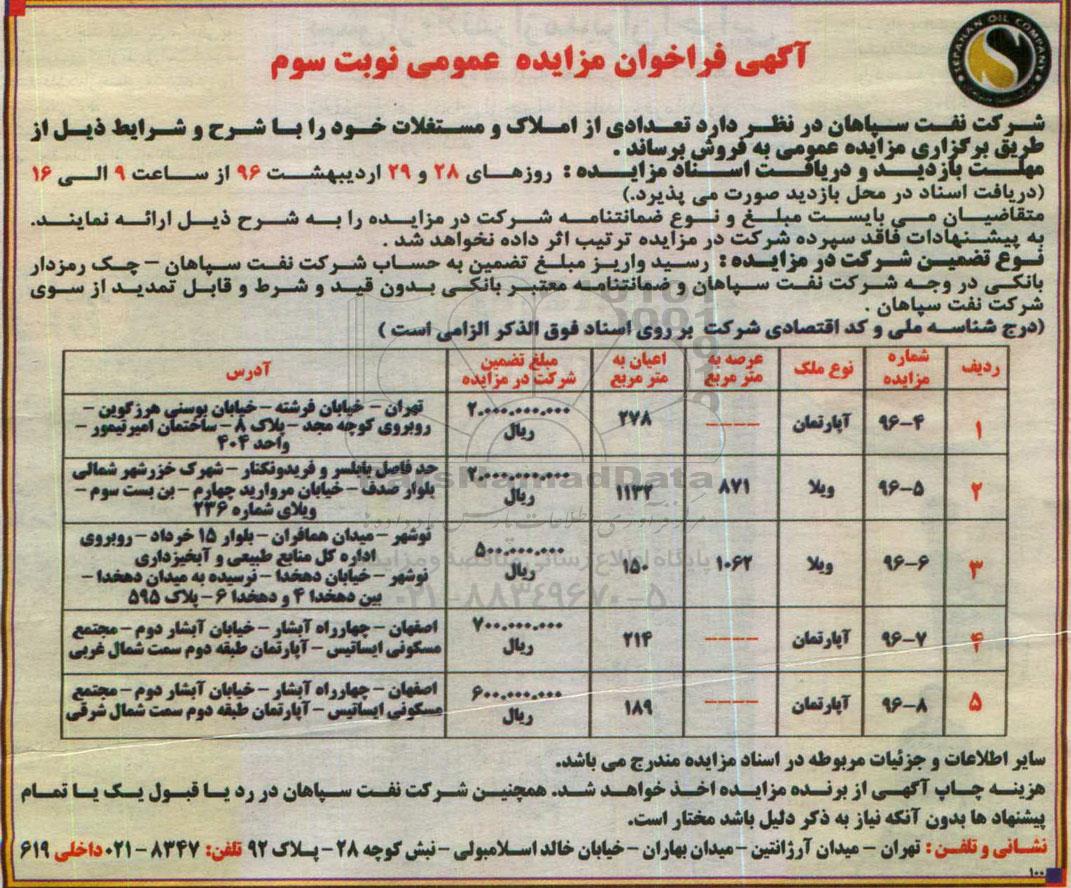 SEPAHAN OIL COMPANY
آگهی فراخوان مزایده عمومی نوبت سوم
شرکت نفت سپاهان در نظر دارد تعدادی از املاک و مستغلات خود را با شرح و شرایط ذیل از
طریق برگزاری مزایده عمومی به فروش برساند .
مهلت بازدید و دریافت اسناد مزایده : روزهای ۲۸ و ۲۹ اردیبهشت ۹۶ از ساعت ۹ الی ۱۶
(دریافت اسناد در محل بازدید صورت می پذیرد.)
متقاضیان می بایست مبلغ و نوع ضمانتنامه شرکت در مزایده را به شرح ذیل ارائه نمایند.
به پیشنهادات فاقد سپرده شرکت در مزایده ترتیب اثر داده نخواهد شد .
نوع تضمین شرکت در مزایده : رسید واریز مبلغ تضمین به حساب شرکت نفت سپاهان – چک رمزدار
بانکی در وجه شرکت نفت سپاهان و ضمانتنامه معتبر بانکی بدون قید و شرط و قابل تمدید از سوی
شرکت نفت سپاهان .
(درج شناسه ملی و کد اقتصادی شرکت بر روی اسناد فوق الذکر الزامی است )
ردیف شماره مزایده نوع ملک عرصه به متر مربع اعیان به متر مربع مبلغ تضمین شرکت در مزایده آدرس
۱ ۹۶-۴ آپارتمان ----- ۲۷۸ ۲.۰۰۰.۰۰۰.۰۰۰ ریال تهران – خیابان فرشته – خیابان بوسنی هرزگوین –
روبروی کوچه مجد – پلاک ۸ – ساختمان امیرتیمور –
واحد ۴۰۴
۲ ۹۶-۵ ویلا ۸۷۱ ۱۱۳۴ ۲.۰۰۰.۰۰۰.۰۰۰ ریال حد فاصل بابلسر و فریدونکنار – شهرک خزرشهر شمالی
بلوار صدف – خیابان مروارید چهارم – بن بست سوم –
ویلای شماره ۲۳۶
۳ ۹۶-۶ ویلا ۱۰۶۲ ۱۵۰ ۵۰۰.۰۰۰.۰۰۰ ریال نوشهر – میدان همافران – بلوار ۱۵ خرداد – روبروی
اداره کل منابع طبیعی و آبخیزداری
نوشهر – خیابان دهخدا – نرسیده به میدان دهخدا –
بین دهخدا ۴ و دهخدا ۶ – پلاک ۵۹۵
۴ ۹۶-۷ آپارتمان ----- ۲۱۴ ۷۰۰.۰۰۰.۰۰۰ ریال اصفهان – چهارراه آبشار – خیابان آبشار دوم – مجتمع
مسکونی ایساتیس – آپارتمان طبقه دوم سمت شمال غربی
۵ ۹۶-۸ آپارتمان ----- ۱۸۹ ۶۰۰.۰۰۰.۰۰۰ ریال اصفهان – چهارراه آبشار – خیابان آبشار دوم – مجتمع
مسکونی ایساتیس – آپارتمان طبقه دوم سمت شمال شرقی
ParsNamadData
پایگاه اطلاع رسانی مناقصه و مزایده
۰۲۱-۸۸۳۴۹۶۷۰-۵
سایر اطلاعات و جزئیات مربوطه در اسناد مزایده مندرج می باشد.
هزینه چاپ آگهی از برنده مزایده اخذ خواهد شد. همچنین شرکت نفت سپاهان در رد یا قبول یک یا تمام
پیشنهاد ها بدون آنکه نیاز به ذکر دلیل باشد مختار است.
نشانی و تلفن : تهران – میدان آرژانتین – میدان بهاران – خیابان خالد اسلامبولی – نبش کوچه ۲۸ – پلاک ۹۲ تلفن: ۸۳۴۷ – ۰۲۱ داخلی ۶۱۹
۱۰۰